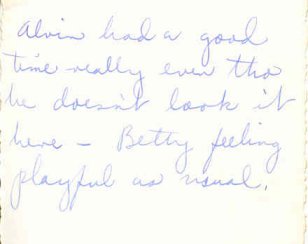 Alvin had a good
time really even tho
he doesn't look it
here - Betty feeling
playful as usual.